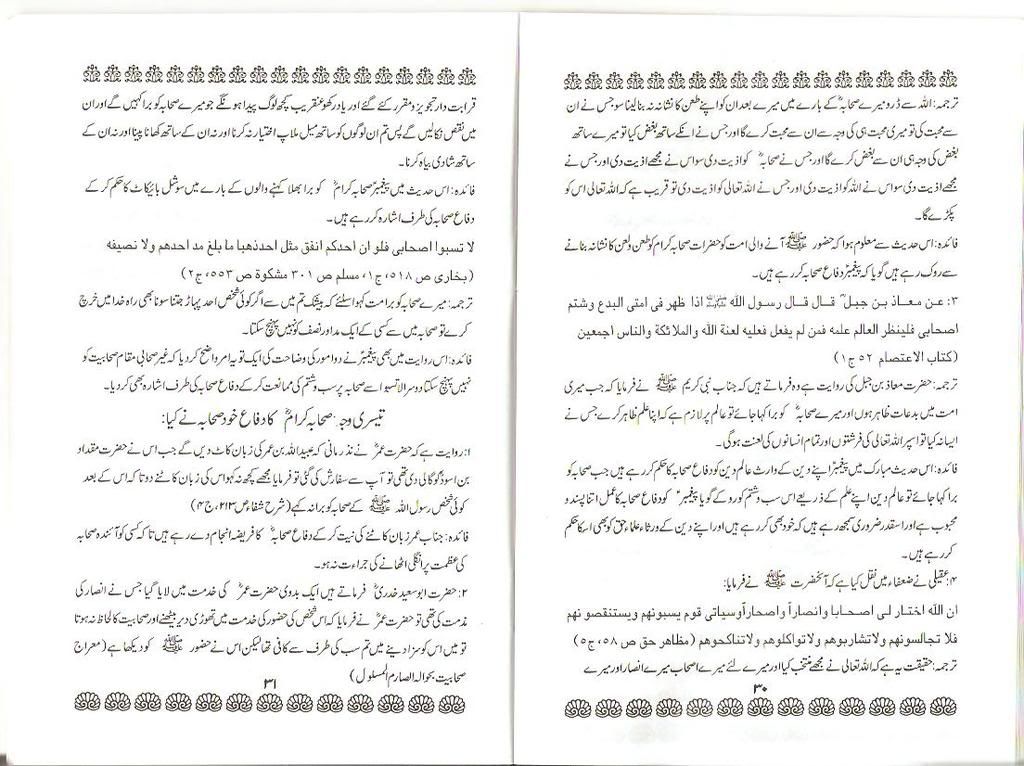 ترجمہ: اللہ سے ڈرو میرے صحابہؓ کے بارے میں میرے بعد ان کو اپنے طعن کا نشانہ نہ بنا لینا سو جس نے ان
سے محبت کی تو میری محبت ہی کی وجہ سے ان سے محبت کرے گا اور جس نے انکے ساتھ بغض کیا تو میرے ساتھ
بغض کی وجہ ہی ان سے بغض کرے گا اور جس نے صحابہؓ کو اذیت دی سو اس نے مجھے اذیت دی اور جس نے
مجھے اذیت دی سو اس نے اللہ کو اذیت دی اور جس نے اللہ تعالی کو اذیت دی تو قریب ہے کہ اللہ تعالی اس کو
پکڑے گا۔
فائدہ: اس حدیث سے معلوم ہوا کہ حضور ﷺ آنے والی امت کو حضرات صحابہ کرام کو طعن ولعن کا نشانہ بنانے
سے روک رہے ہیں گویا کہ پیغمبرؐ دفاع صحابہ کر رہے ہیں۔
۳: عن معاذ بن جبلؓ قال قال رسول اللہ ﷺ اذا ظهر فى امتى البدع وشتم
اصحابى فلينظر العالم علمه فمن لم يفعل فعليه لعنة الله والملائكة والناس اجمعين
(كتاب الاعتصام ۵۲ ج۱)
ترجمہ: حضرت معاذ بن جبل کی روایت ہے وہ فرماتے ہیں کہ جناب نبی کریم ﷺ نے فرمایا کہ جب میری
امت میں بدعات ظاہر ہوں اور میرے صحابہؓ کو برا کہا جائے تو عالم پر لازم ہے کہ اپنا علم ظاہر کرے جس نے
ایسا نہ کیا تو اسپر اللہ تعالی کی فرشتوں اور تمام انسانوں کی لعنت ہو گی۔
فائدہ: اس حدیث مبارک میں پیغمبرؐ اپنے دین کے وارث عالم دین کو دفاع صحابہ کا حکم کر رہے ہیں جب صحابہ کو
برا کہا جائے تو عالم دین اپنے علم کے ذریعے اس سب وشتم کو روکے گویا پیغمبرؐ کو دفاع صحابہ کا عمل اتنا پسند و
محبوب ہے اور اسقدر ضروری سمجھ رہے ہیں کہ خود بھی کر رہے ہیں اور اپنے دین کے ورثاء علماء حق کو بھی اسکا حکم
کر رہے ہیں۔
۴: عقیلی نے ضعفاء میں نقل کیا ہے کہ آنحضرت ﷺ نے فرمایا:
ان الله اختار لى اصحابا وانصاراً واصحاراً وسياتى قوم يسبونهم ويستنقصو نهم
فلا تجالسونهم ولاتشاربوهم ولاتواكلوهم ولاتناكحوهم (مظاہر حق ص ۵۸، ج۵)
ترجمہ: حقیقت یہ ہے کہ اللہ تعالی نے مجھے منتخب کیا اور میرے لئے میرے اصحاب میرے انصار اور میرے
۳۰
قرابت دار تجویز و مقرر کئے گئے اور یاد رکھو عنقریب کچھ لوگ پیدا ہونگے جو میرے صحابہ کو برا کہیں گے اور ان
میں نقص نکالیں گے پس تم ان لوگوں کو ساتھ میل ملاپ اختیار نہ کرنا اور نہ ان کے ساتھ کھانا پینا اور نہ ان کے
ساتھ شادی بیاہ کرنا۔
فائدہ: اس حدیث میں پیغمبرؐ صحابہ کرامؓ کو برا بھلا کہنے والوں کے بارے میں سوشل بائیکاٹ کا حکم کر کے
دفاع صحابہ کی طرف اشارہ کر رہے ہیں۔
لا تسبوا اصحابى فلو ان احدكم انفق مثل احد ذهبا ما بلغ مد احدهم ولا نصيفه
(بخارى ص ۵۱۸، ج۱، مسلم ص ۳۰۱ مشكوة ص ۵۵۳، ج۲)
ترجمہ: میرے صحابہ کو برا مت کہو اسلئے کہ بیشک تم میں سے اگر کوئی شخص احد پہاڑ جتنا سونا بھی راہ خدا میں خرچ
کرے تو صحابہ میں سے کسی کے ایک مد اور نصف کو نہیں پہنچ سکتا۔
فائدہ: اس روایت میں بھی پیغمبرؐ نے دو امور کی وضاحت کی ایک تو یہ امر واضح کر دیا کہ غیر صحابی مقام صحابیت کو
نہیں پہنچ سکتا دوسرا لاتسبوا سے صحابہ پر سب وشتم کی ممانعت کر کے دفاع صحابہ کی طرف اشارہ بھی کر دیا۔
تیسری وجہ: صحابہ کرامؓ کا دفاع خود صحابہ نے کیا:
۱: روایت ہے کہ حضرت عمرؓ نے نذر مانی کہ عبید اللہ بن عمر کی زبان کاٹ دیں گے جب اس نے حضرت مقداد
بن اسودؓ کو گالی دی تھی تو آپ سے سفارش کی گئی تو فرمایا مجھے کچھ نہ کہو اس کی زبان کاٹنے دو تا کہ اس کے بعد
کوئی شخص رسول اللہ ﷺ کے صحابہ کو برا نہ کہے (شرح شفاء ص ۲۱۳، ج۴)
فائدہ: جناب عمر زبان کاٹنے کی نیت کر کے دفاع صحابہؓ کا فریضہ انجام دے رہے ہیں تا کہ کسی کو آئندہ صحابہ
کی عظمت پر انگلی اٹھانے کی جراءت نہ ہو۔
۲: حضرت ابو سعید خدریؓ فرماتے ہیں ایک بدوی حضرت عمرؓ کی خدمت میں لایا گیا جس نے انصار کی
مذمت کی تھی تو حضرت عمرؓ نے فرمایا کہ اس شخص کی حضور کی خدمت میں تھوڑی دیر بیٹھنے اور صحابیت کا لحاظ نہ ہوتا
تو میں اس کو سزا دینے میں تم سب کی طرف سے کافی تھا لیکن اس نے حضور ﷺ کو دیکھا ہے (معراج
صحابیت بحوالہ الصارم المسلول)
۳۱